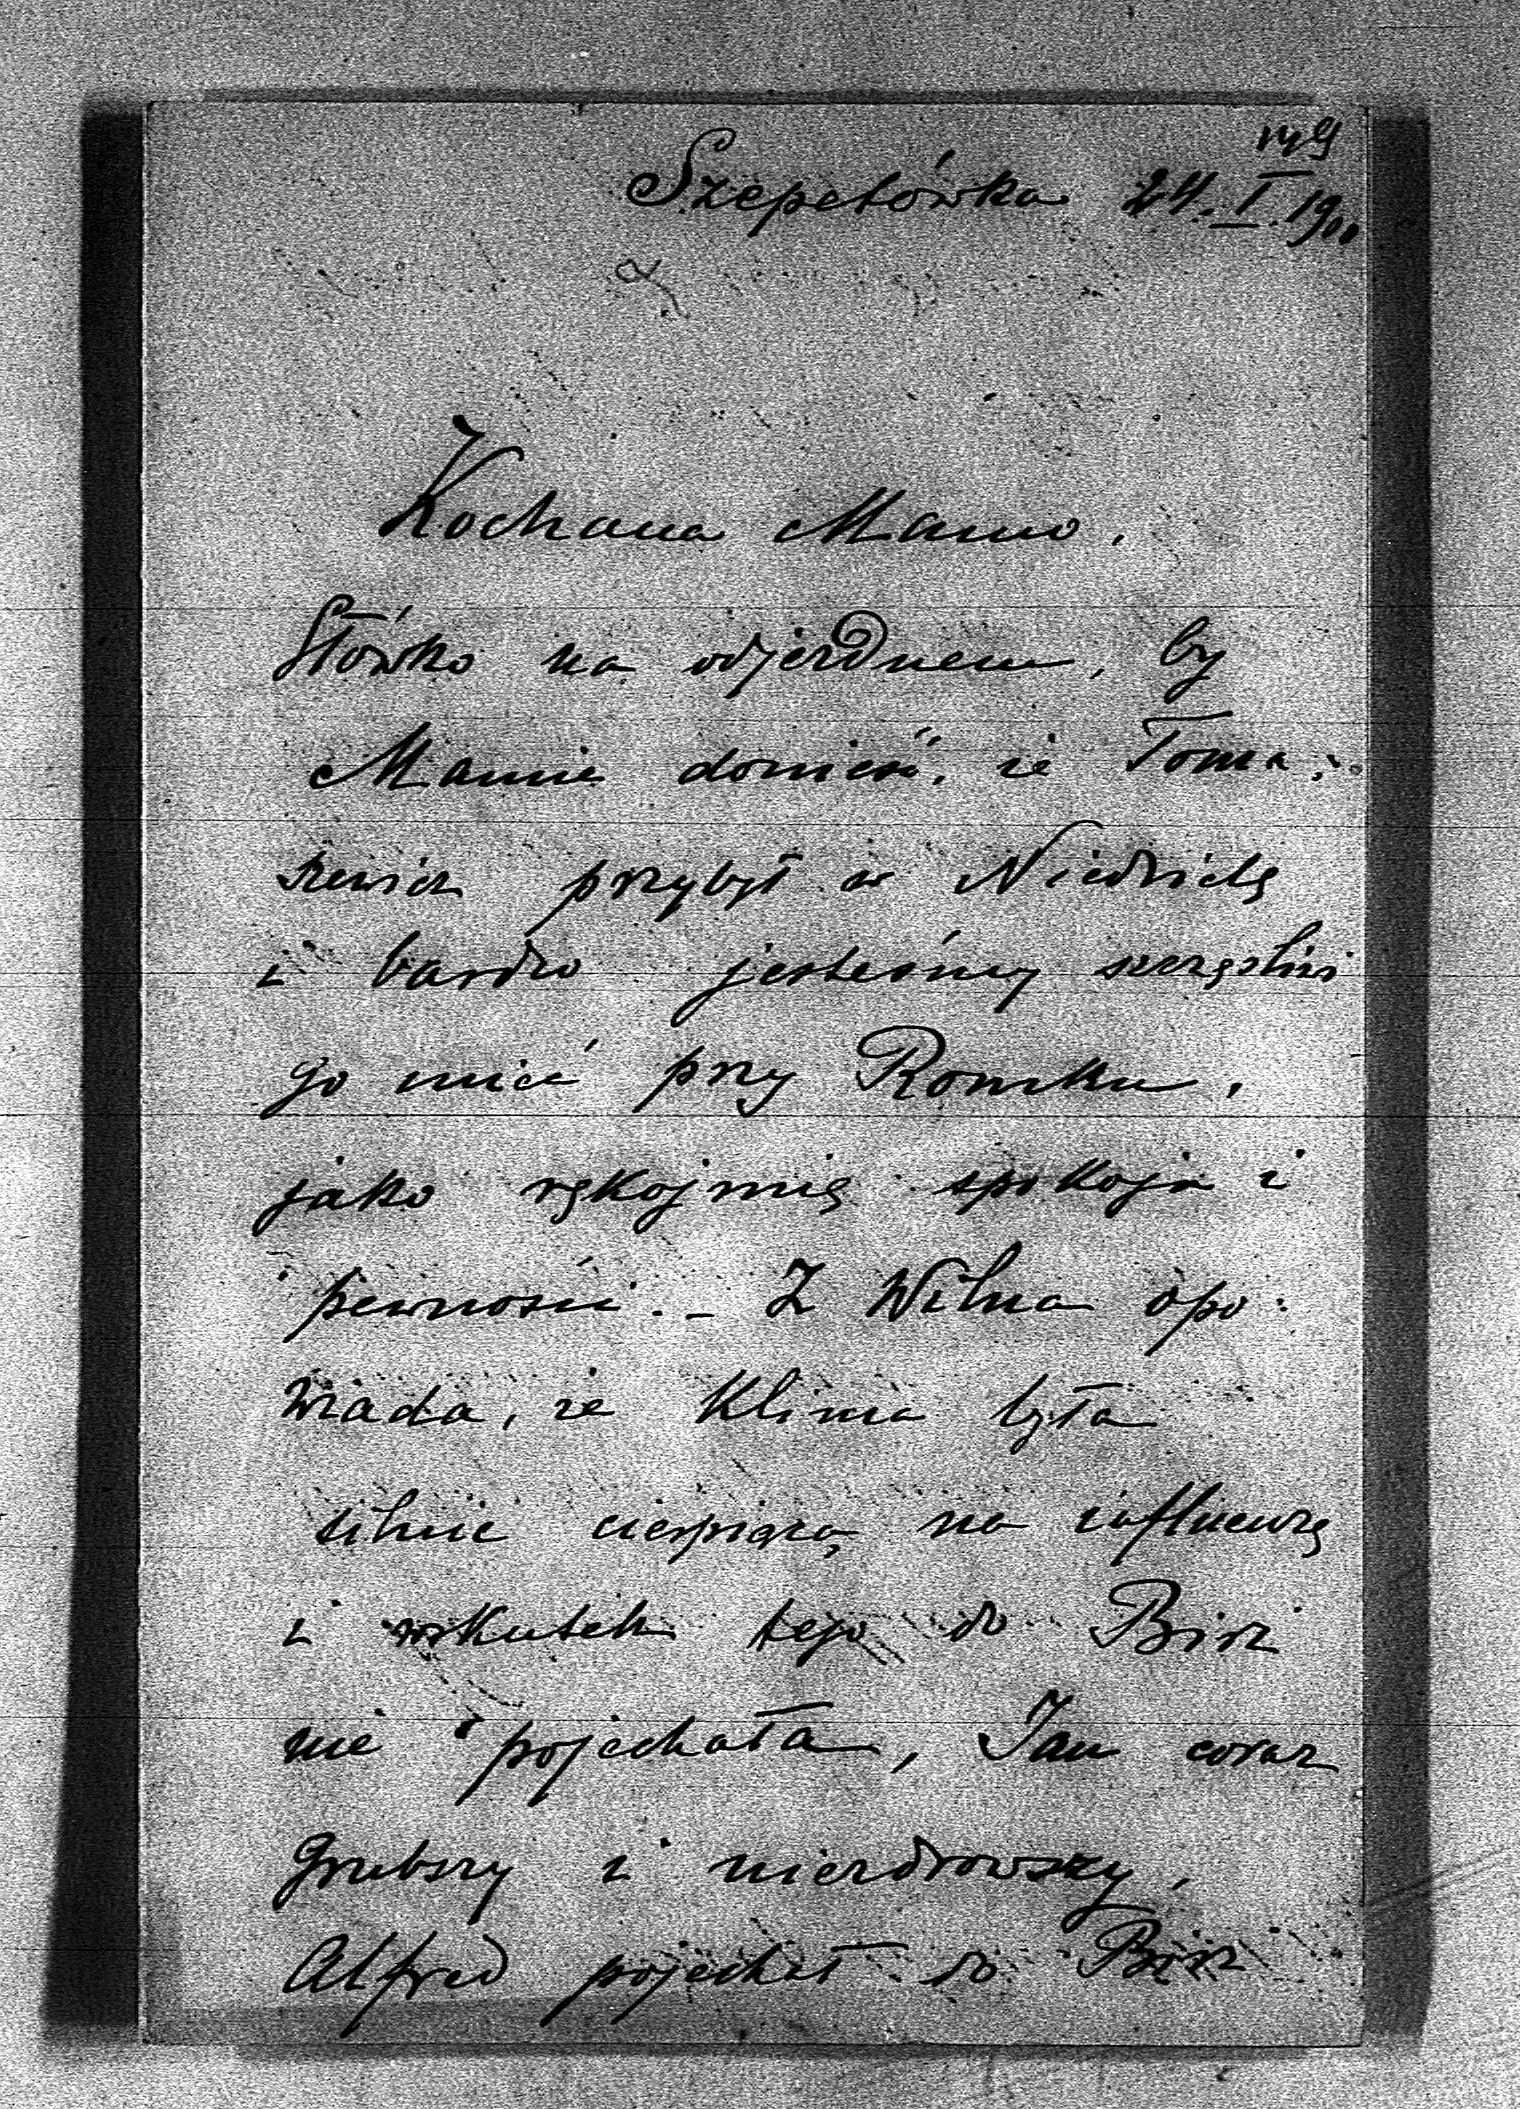 149
Szepetówka 24.I.1900
Kochana Mamo.
Słówko na odjezdnem, by
Mamie donieść, że Toma-
szewicz przybył w Niedzielę
i bardzo jesteśmy szczęśliwi
go mieć przy Romku,
jako rękojmię spokoju i
pewności. – Z Wilna opo-
wiada, że Klimcia była
silnie cierpiącą na influenzę
i wskutek tego do Birż
nie pojechała, Jan coraz
grubszy i niezdrowszy,
Alfred pojechał do Birż